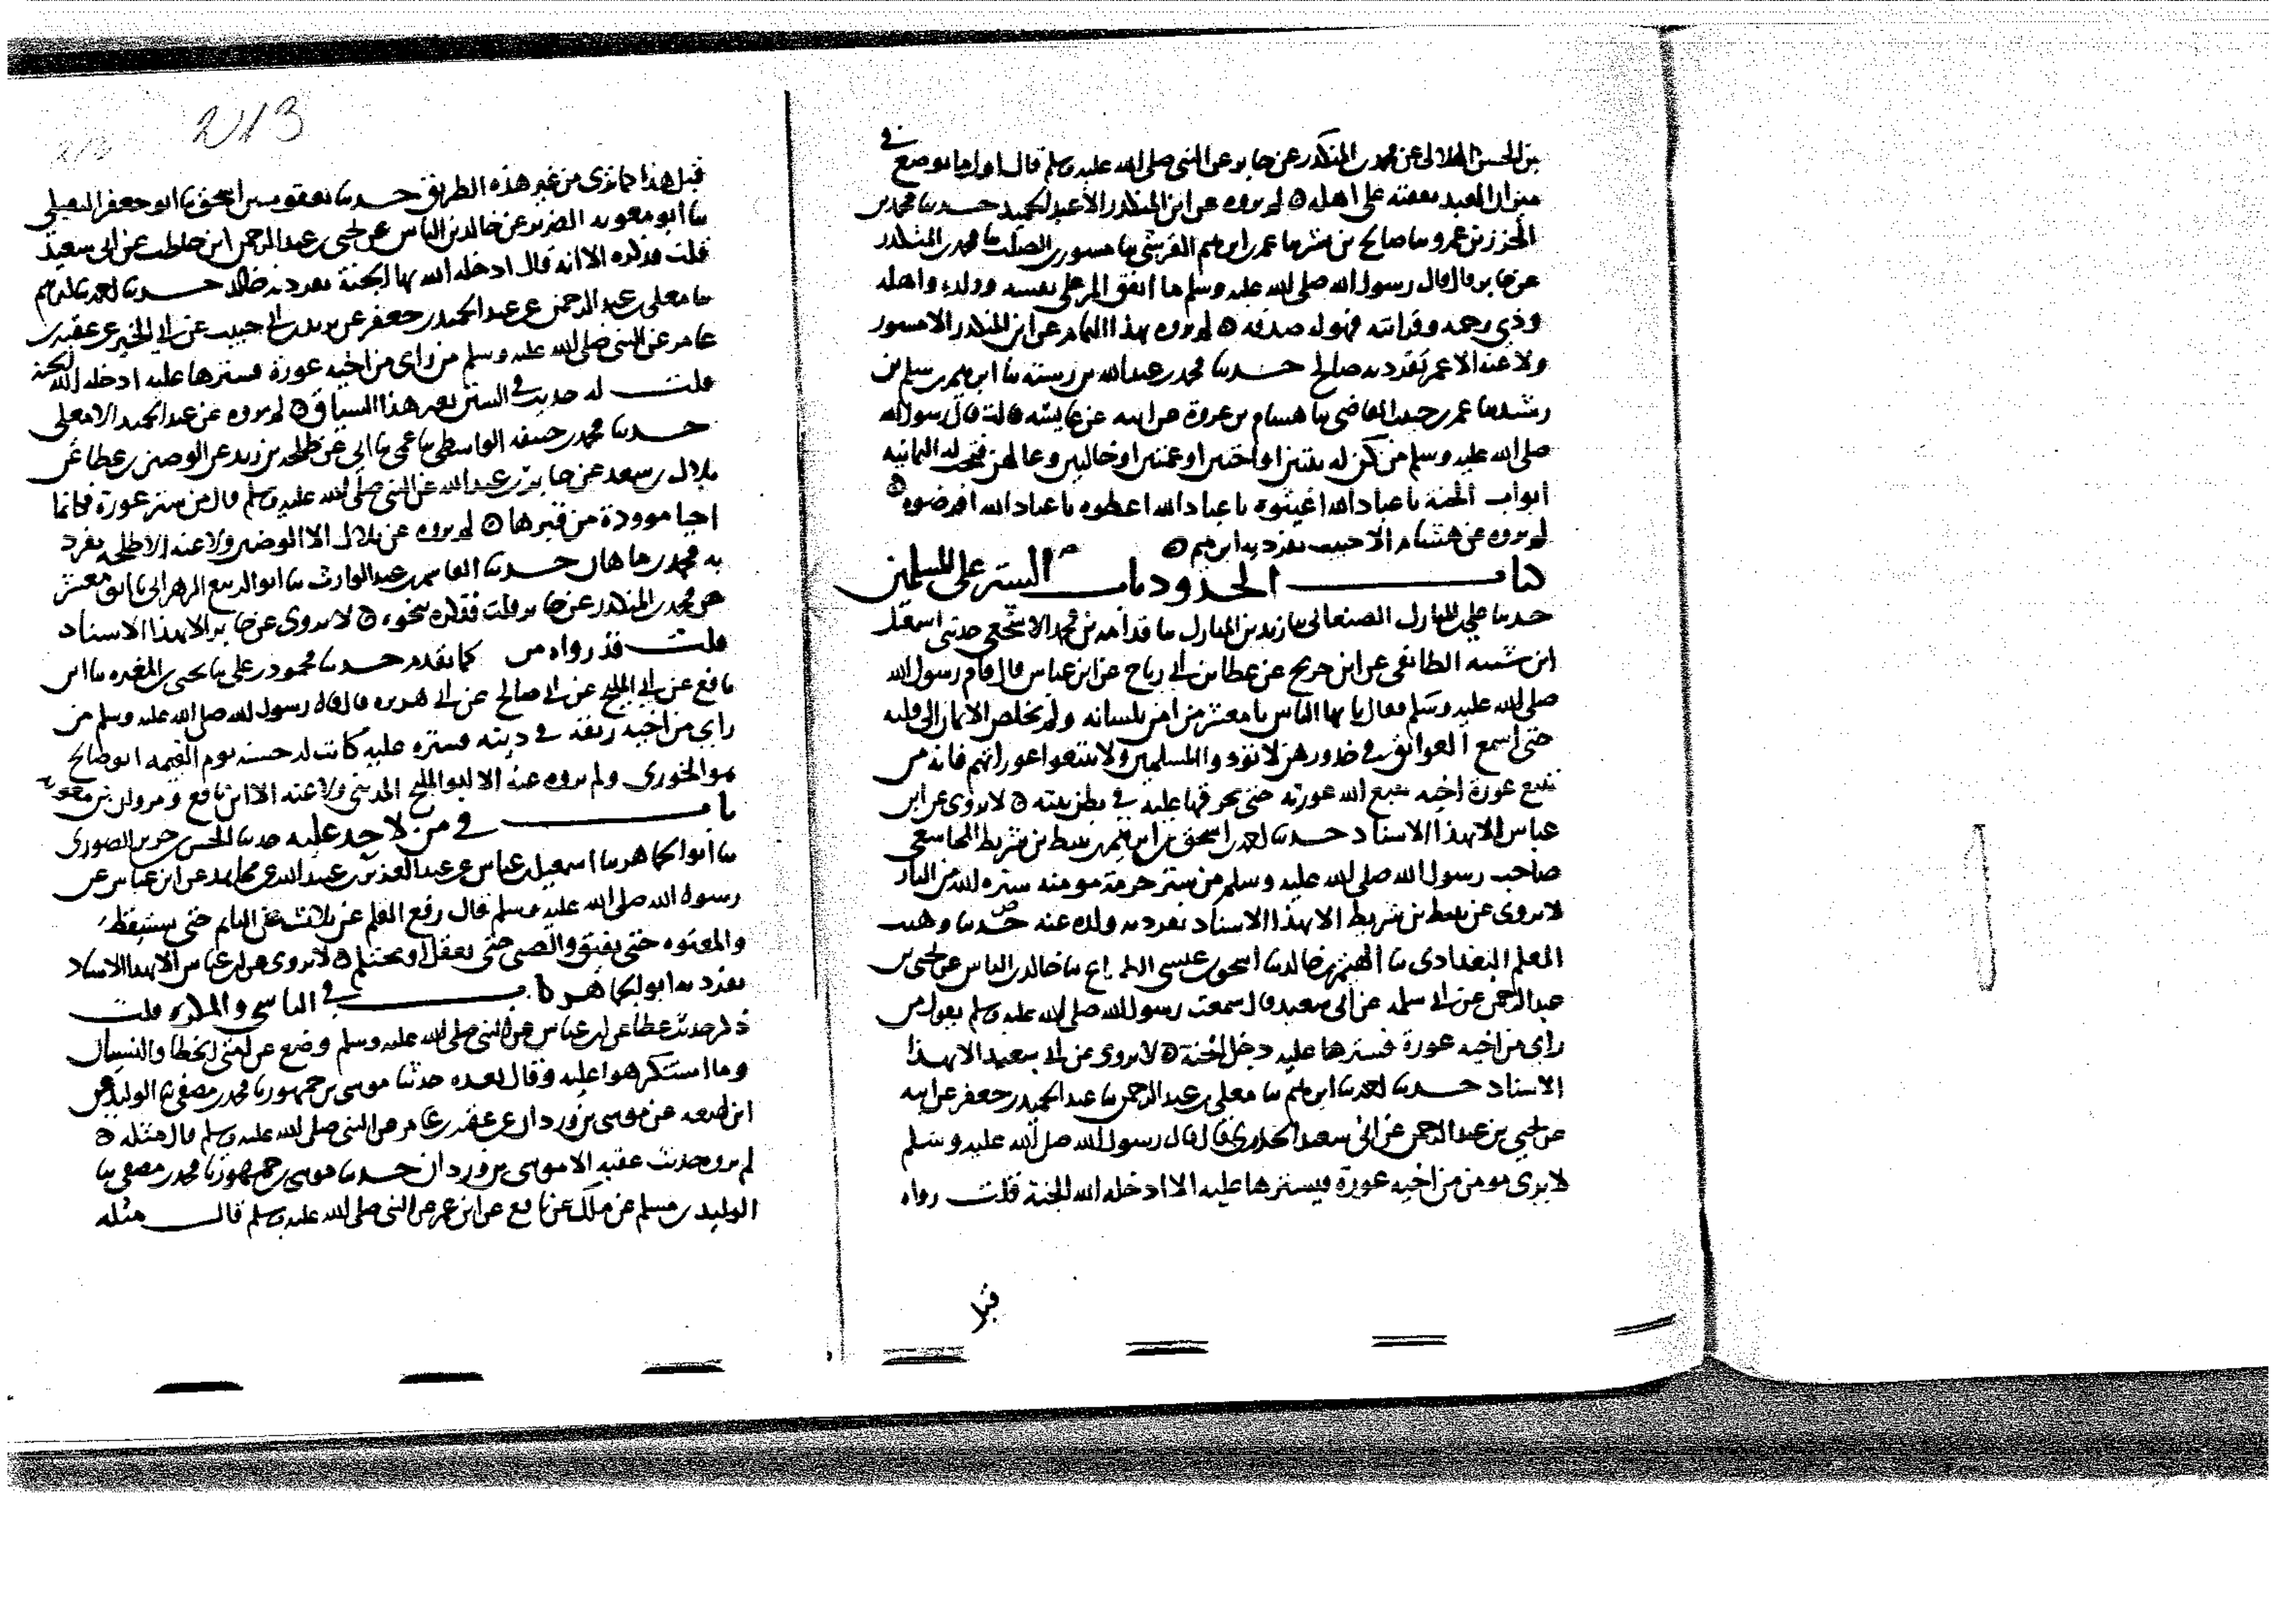 بن الحسن الهلالي عن محمد بن المنكدر عن جابر عن النبي صلى الله عليه وسلم قال اول ما يوضع في
ميزان العبد نفقته على اهله لم يروه عن ابن المنكدر الا عبد الحميد حدثنا محمد بن
المحرز بن عمرو ثنا صالح بن بشر ثنا عمر ابن ابرهيم القرشي ثنا مسور بن الصلت ثنا محمد بن المنكدر
عن جابر قال قال رسول الله صلى الله عليه وسلم ما انفق المر على نفسه وولده واهله
وذي رحمه وقرابته فهو له صدقة لم يروه بهذا التمام عن ابن المنكدر الا مسور
ولا عنه الا عمر تفرد به صالح حدثنا محمد بن عبد الله بن رسته ثنا ابرهيم بن سلم بن
رشيد ثنا عمر بن حبيب القاضي ثنا هشام بن عروة عن ابيه عن عايشه قالت قال رسول الله
صلى الله عليه وسلم من كن له بنتين او اختين او عمتين او خالتين وعالهن فتحت له الثمانيه
ابواب الجنة يا عباد الله اغيثوه يا عباد الله اعطوه يا عباد الله اقرضوه
لم يروه عن هشام الا حبيب تفرد به ابرهيم
كتاب الحدود باب الستر على المسلمين
حدثنا علي بن المبارك الصنعاني ثنا زيد بن المبارك ثنا قدامه بن محمد الاشجعي حدثني اسمعيل
ابن شيبه الطائفي عن ابن جريج عن عطا بن ابي رباح عن ابن عباس قال قام رسول الله
صلى الله عليه وسلم فقال يا ايها الناس يا معشر من امن بلسانه ولم يخلص الايمان الى قلبه
حتى اسمع العواتق في خدورهن لا تؤذوا المسلمين ولا تتبعوا عوراتهم فانه من
تتبع عورة اخيه تتبع الله عورته حتى يخرقها عليه في بطن بيته لا يروى عن ابن
عباس الا بهذا الاسناد حدثنا احمد بن اسحق بن ابرهيم بن نبيط بن شريط الاشجعي
صاحب رسول الله صلى الله عليه وسلم من ستر حرمة مومنه ستره الله من النار
لا يروى عن نبيط بن شريط الا بهذا الاسناد تفرد به ولده عنه حدثنا وهب
المعلم البغدادي ثنا الهيثم بن خالد ثنا اسحق بن عيسى الطباع ثنا خالد بن الياس عن يحيى بن
عبد الرحمن عن ابي سلمه عن ابي سعيد قال سمعت رسول الله صلى الله عليه وسلم يقول من
راى من اخيه عورة فسترها عليه دخل الجنة لا يروى عن ابي سعيد الا بهذا
الاسناد حدثنا احمد ثنا ابرهيم ثنا معلى بن عبد الرحمن ثنا عبد الحميد بن جعفر عن ابيه
عن يحيى بن عبد الرحمن عن ابي سعيد الخدري قال قال رسول الله صلى الله عليه وسلم
لا يرى مومن من اخيه عورة فيسترها عليه الا ادخله الله الجنة قلت رواه
قبل
213
213
قبل هذا كما ترى من غير هذه الطريق حدثنا يعقوب بن اسحق ثنا ابو جعفر النفيلي
ثنا ابو معويه الضرير عن خالد بن الياس عن يحيى بن عبد الرحمن ابن حاطب عن ابي سعيد
قلت فذكره الا انه قال ادخله الله بها الجنة تفرد به خالد حدثنا احمد ثنا ابرهيم
ثنا معلى بن عبد الرحمن عن عبد الحميد بن جعفر عن يزيد بن ابي حبيب عن ابي الخير عن عقبة بن
عامر عن النبي صلى الله عليه وسلم من راى من اخيه عورة فسترها عليه ادخله الله الجنة
قلت له حديث في السنن بغير هذا السياق لم يروه عن عبد الحميد الا معلى
حدثنا محمد بن حنيفه الواسطي ثنا عمي ثنا ابي عن طلحه بن زيد عن الوضين بن عطا عن
بلال بن سعد عن جابر بن عبد الله عن النبي صلى الله عليه وسلم قال من ستر عورة فكانما
احيا موودة من قبرها لم يروه عن بلال الا الوضين ولا عنه الا طلحه تفرد
به محمد بن ماهان حدثنا القاسم بن عبد الوارث ثنا ابو الربيع الزهراني ثنا ابو معشر
عن محمد بن المنكدر عن جابر قلت فذكره بنحوه لا يروى عن جابر الا بهذا الاسناد
قلت قد رواه من كما تقدم حدثنا محمود بن علي ثنا يحيى بن المغيره ثنا ابن
نافع عن ابي المليح عن ابي صالح عن ابي هريره قال قال رسول الله صلى الله عليه وسلم من
راى من اخيه ريقة في دينه فستره عليه كانت له حسنه يوم القيمه ابو صالح
هو الخوزي ولم يروه عنه الا ابو المليح المديني ولا عنه الا ابن نافع ومروان بن معويه
باب في من لا حد عليه حدثنا الحسن بن جرير الصوري
ثنا ابو الجماهر ثنا اسمعيل بن عياش عن عبد العزيز بن عبيد الله عن مجاهد عن ابن عباس عن
رسول الله صلى الله عليه وسلم قال رفع القلم عن ثلاث عن النايم حتى يستيقظ
والمعتوه حتى يفيق والصبي حتى يعقل او يحتلم لا يروى عن ابن عباس الا بهذا الاسناد
تفرد به ابو الجماهر باب في الناسي والمكره قلت
ذكر حديث عطا عن ابن عباس عن النبي صلى الله عليه وسلم وضع عن امتي الخطا والنسيان
وما استكرهوا عليه وقال بعده حدثنا موسى بن جمهور ثنا محمد بن مصفى ثنا الوليد عن
ابن لهيعه عن موسى بن وردان عن عقبه بن عامر عن النبي صلى الله عليه وسلم قال مثله
لم يرو حديث عقبه الا موسى بن وردان حدثنا موسى بن جمهور ثنا محمد بن مصفى ثنا
الوليد بن مسلم عن ملك عن نافع عن ابن عمر عن النبي صلى الله عليه وسلم قال مثله